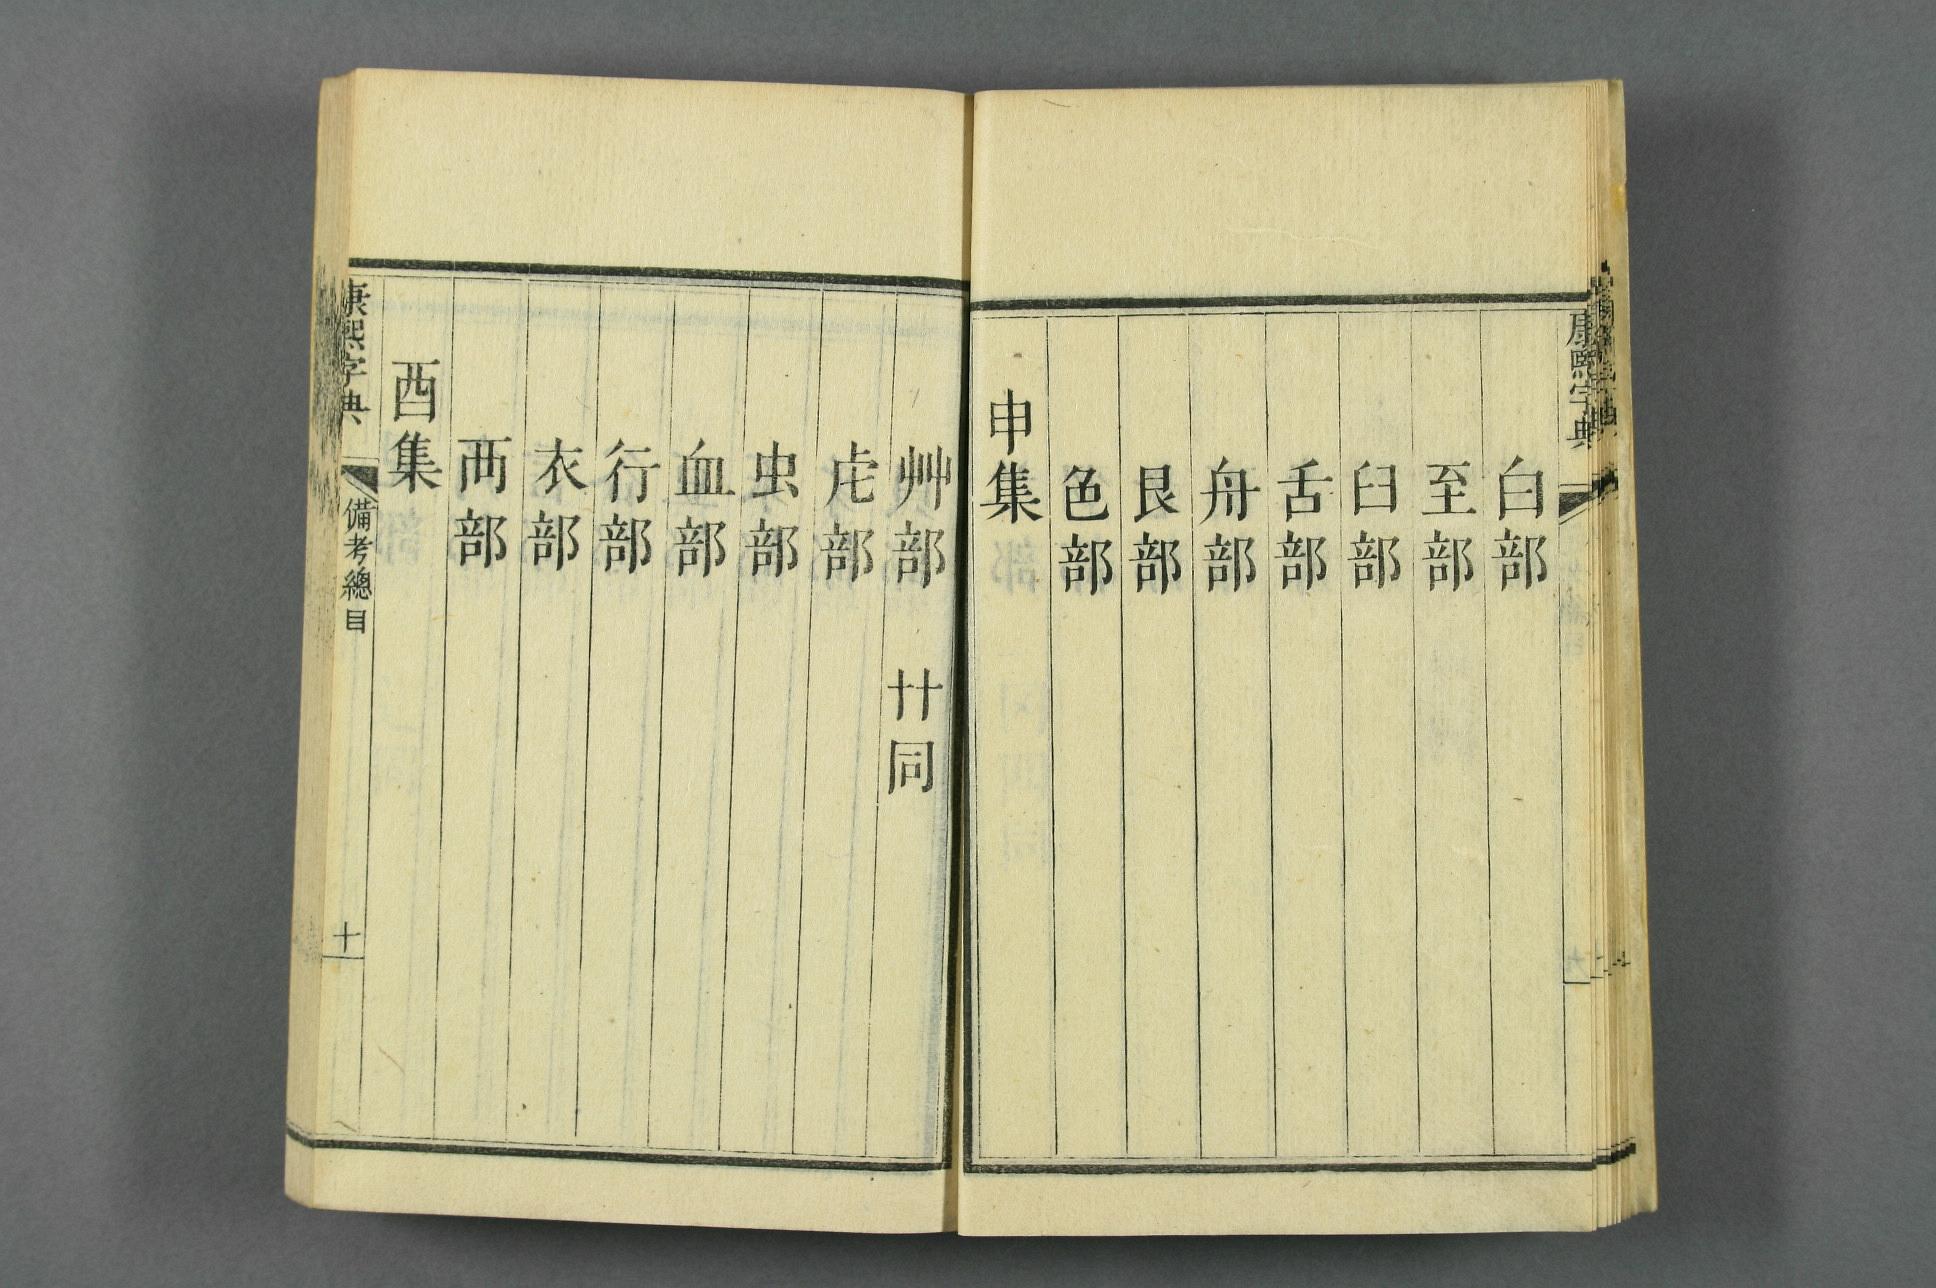 康熙字典
九
白部
至部
臼部
舌部
舟部
艮部
色部
申集
艸部 艹同
虍部
虫部
血部
行部
衣部
襾部
酉集
康熙字典
備考總目
十